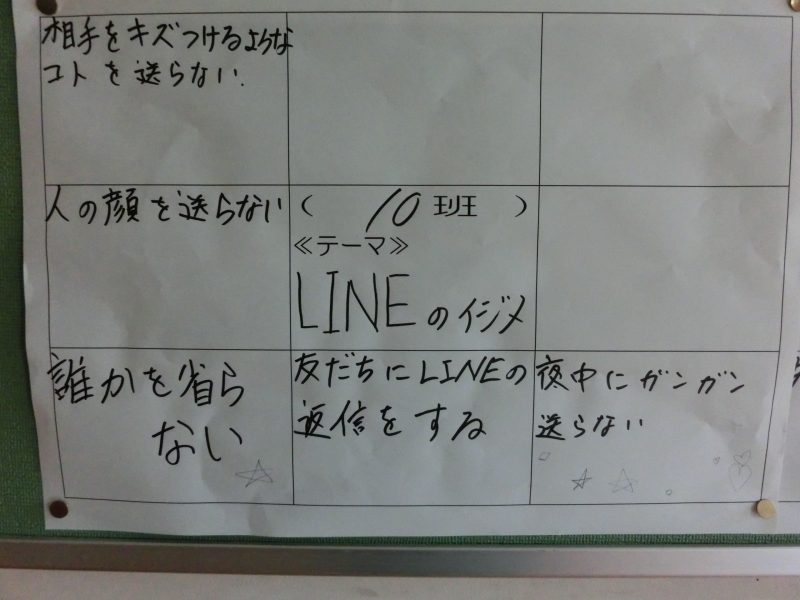 相手をキズつけるような
コトを送らない.
人の顔を送らない
( 10 班 )
≪テーマ≫
LINEのイジメ
誰かを省ら
ない
友だちにLINEの
返信をする
夜中にガンガン
送らない